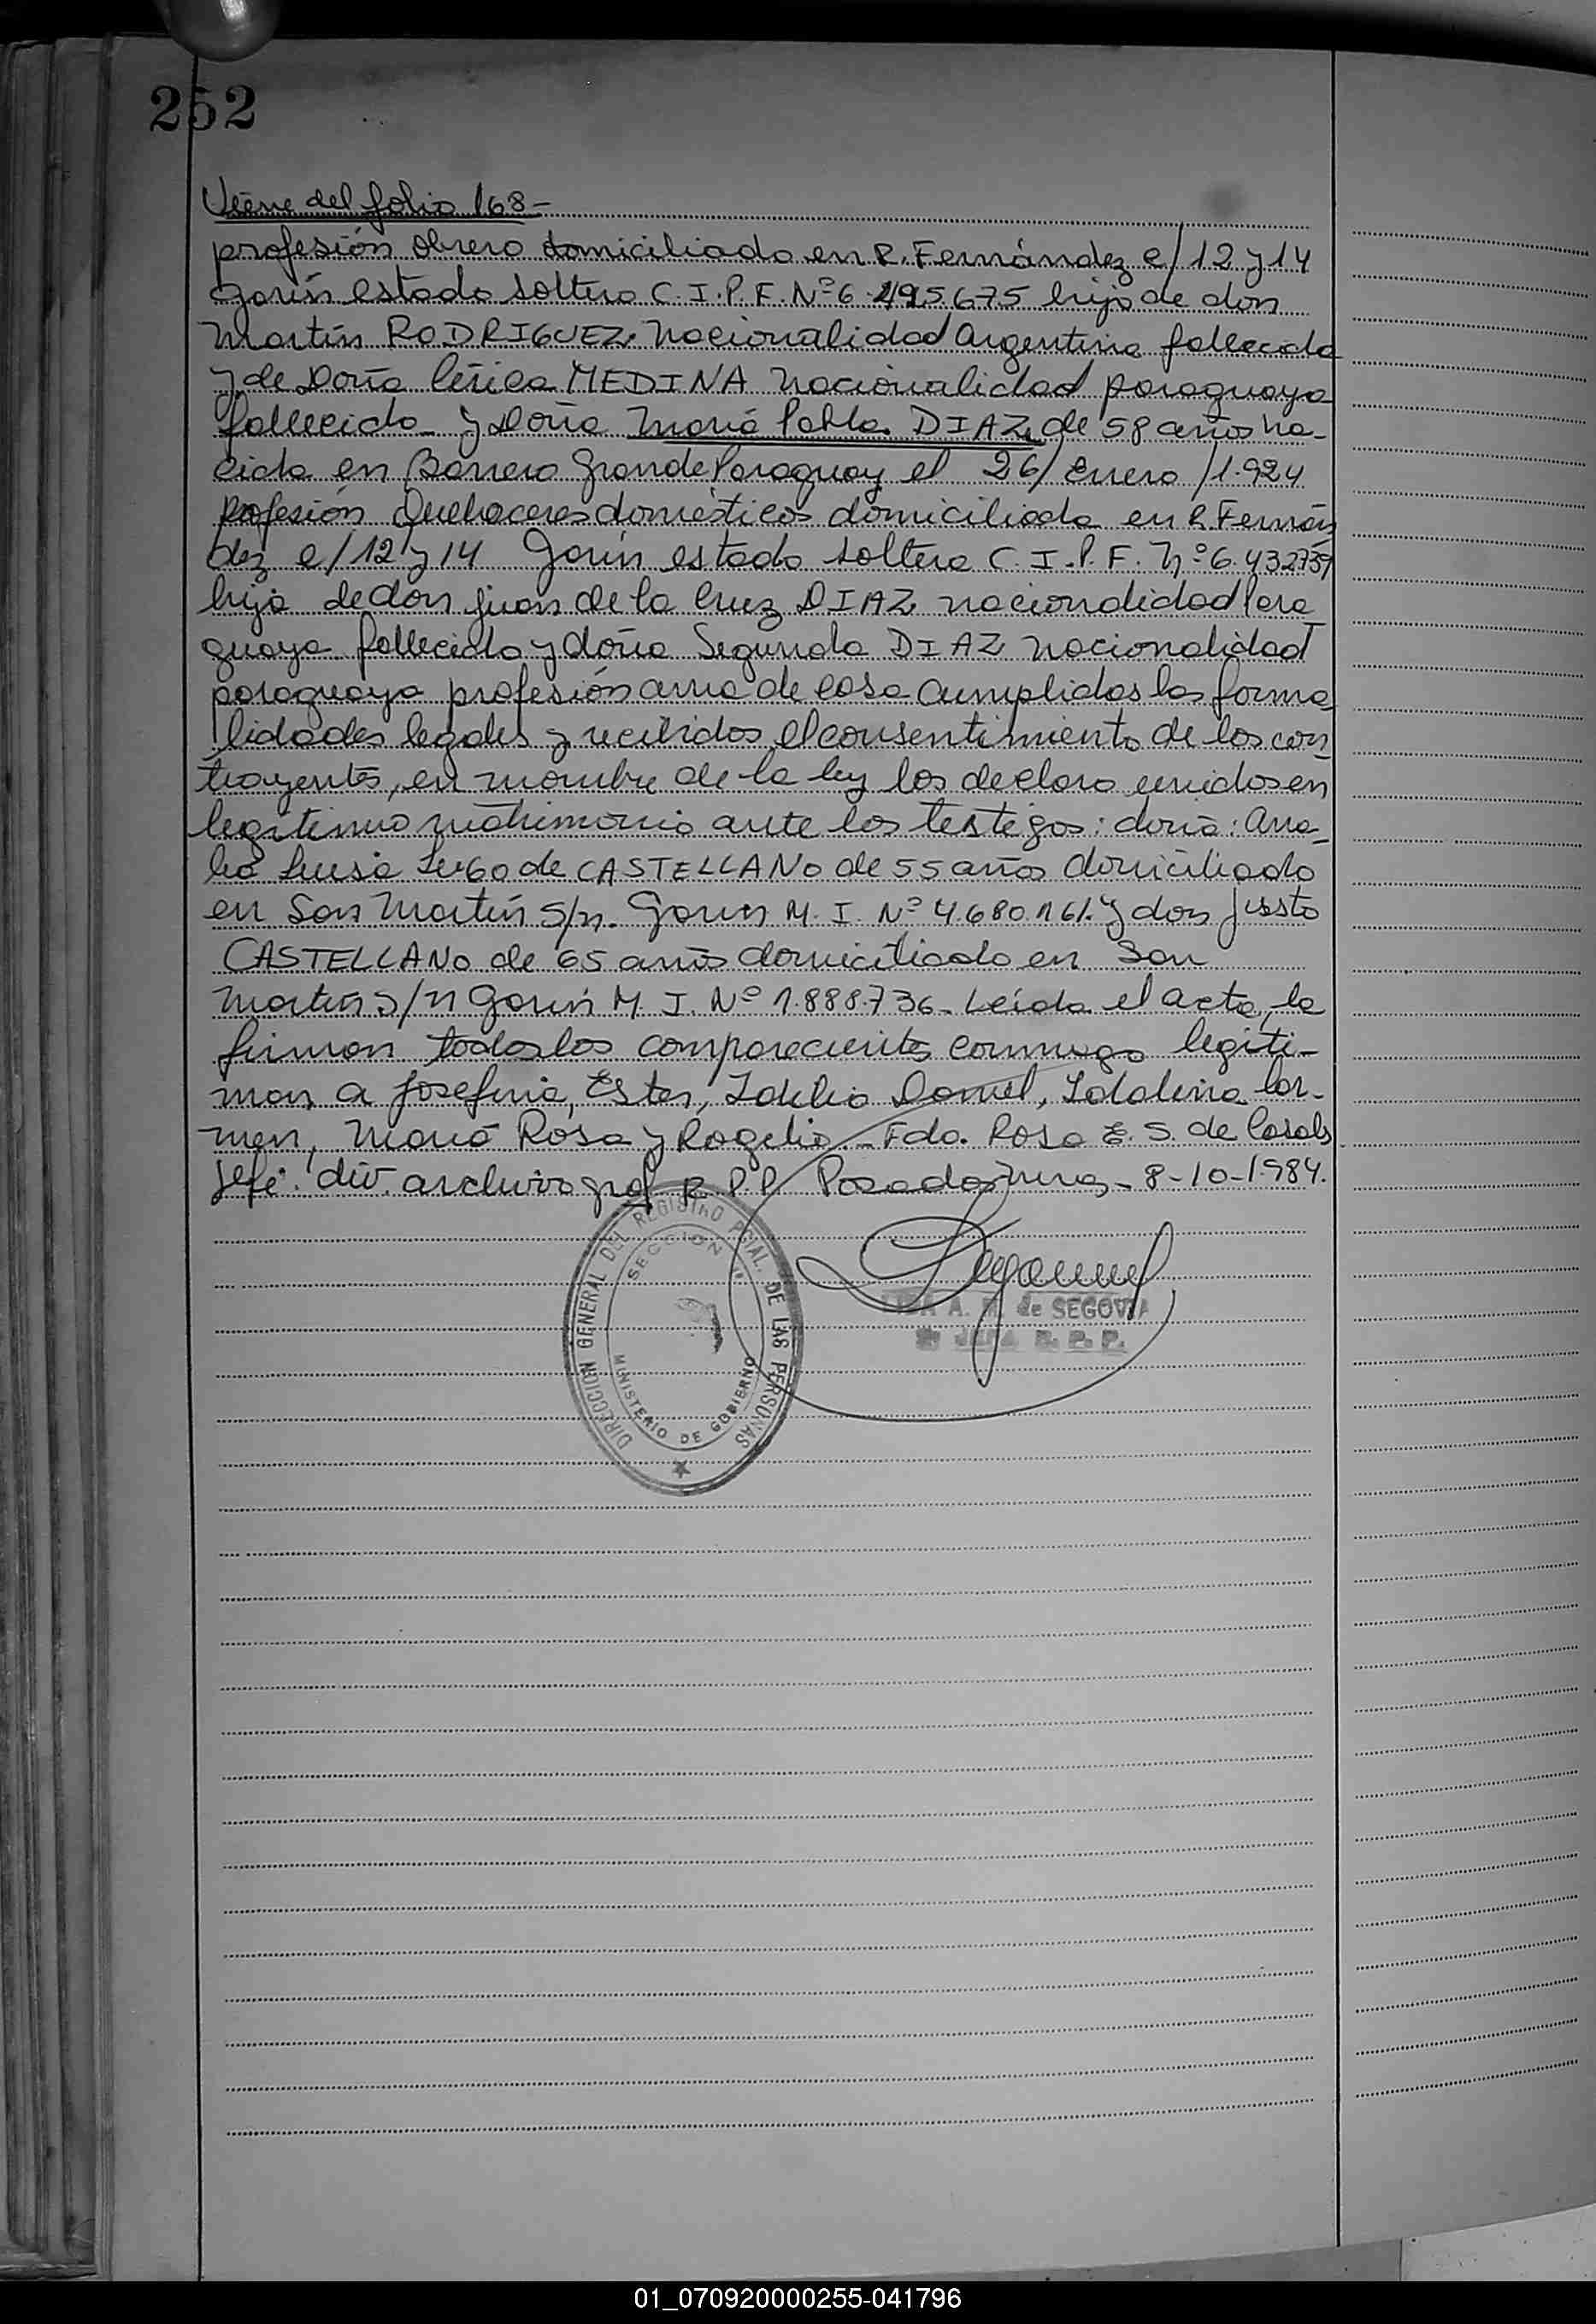 252
Viene del folio 168-
profesión obrero domiciliado en R. Fernández e/12 y 14
Garín estado soltero C.I.P.F. Nº 6.495.675 hijo de don
Martín RODRIGUEZ nacionalidad Argentina fallecido
y de Doña MEDINA nacionalidad paraguaya
fallecida y Doña María Pabla DIAZ de 58 años na-
cida en Barrero Grande Paraguay el 26/Enero/1.924
profesión Quehaceres domésticos domiciliada en R. Fernán
dez e/12 y 14 Garín estado soltera C.I.P.F. Nº 6.432739
hija de don Juan de la Cruz DIAZ nacionalidad Para
guaya fallecido y doña Segunda DIAZ nacionalidad
paraguaya profesión ama de casa cumplidas las forma
lidades legales y recibidos el consentimiento de los con
trayentes, en nombre de la ley los declaro unidos en
legítimo matrimonio ante los testigos: doña: Ama-
lia Luisa Lugo de CASTELLANO de 55 años domiciliado
en San Martín S/n. Garín M.I. Nº 4.680.161. y don Justo
CASTELLANO de 65 años domiciliado en San
Martín S/n Garín M.I. Nº 1.888.736- Leída el acta, la
firman todos los comparecientes conmigo legiti-
man a Josefina, Ester, Idilio Daniel, Idalina Car-
men, María Rosa y Rogelio.- Fdo. Rosa E. S. de Casals
Jefe. div. archivo graf R.P.P. Posadas, - 8-10-1984.
DIRECCIÓN GENERAL DEL REGISTRO PCIAL. DE LAS PERSONAS
SECCION
MINISTERIO DE GOBIERNO
A. M. de SEGOVIA
JEFA R. P. P.
01_070920000255-041796